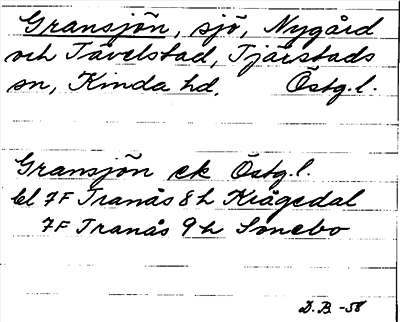 Gransjön, sjö, Nygård
och Tävelstad, Tjärstads
sn, Kinda hd. Östg.l.
Gransjön ek Östg.l.
bl 7F Tranås 8h Krågedal
7F Tranås 9h Sonebo
D.B. -58